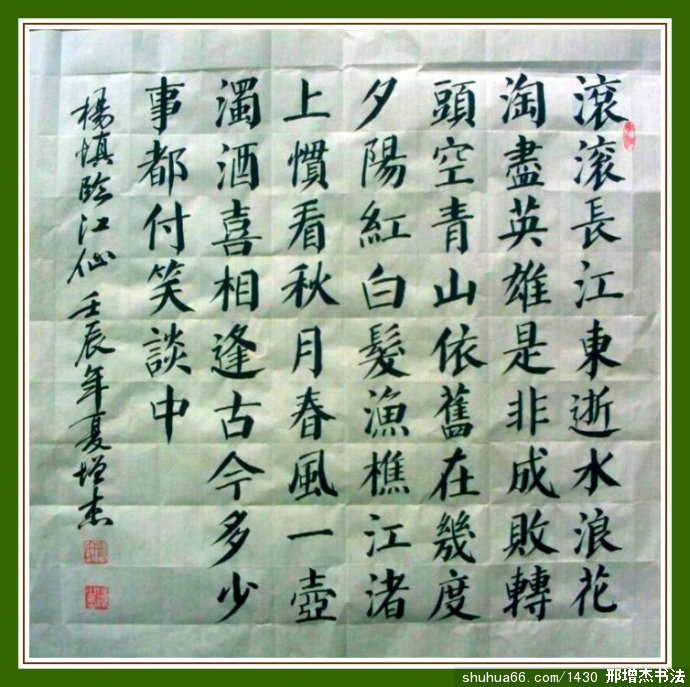 滾滾長江東逝水浪花
淘盡英雄是非成敗轉
頭空青山依舊在幾度
夕陽紅白髮漁樵江渚
上慣看秋月春風一壺
濁酒喜相逢古今多少
事都付笑談中
楊慎臨江仙 壬辰年夏增杰
shuhua66.com/1430 邢增杰书法